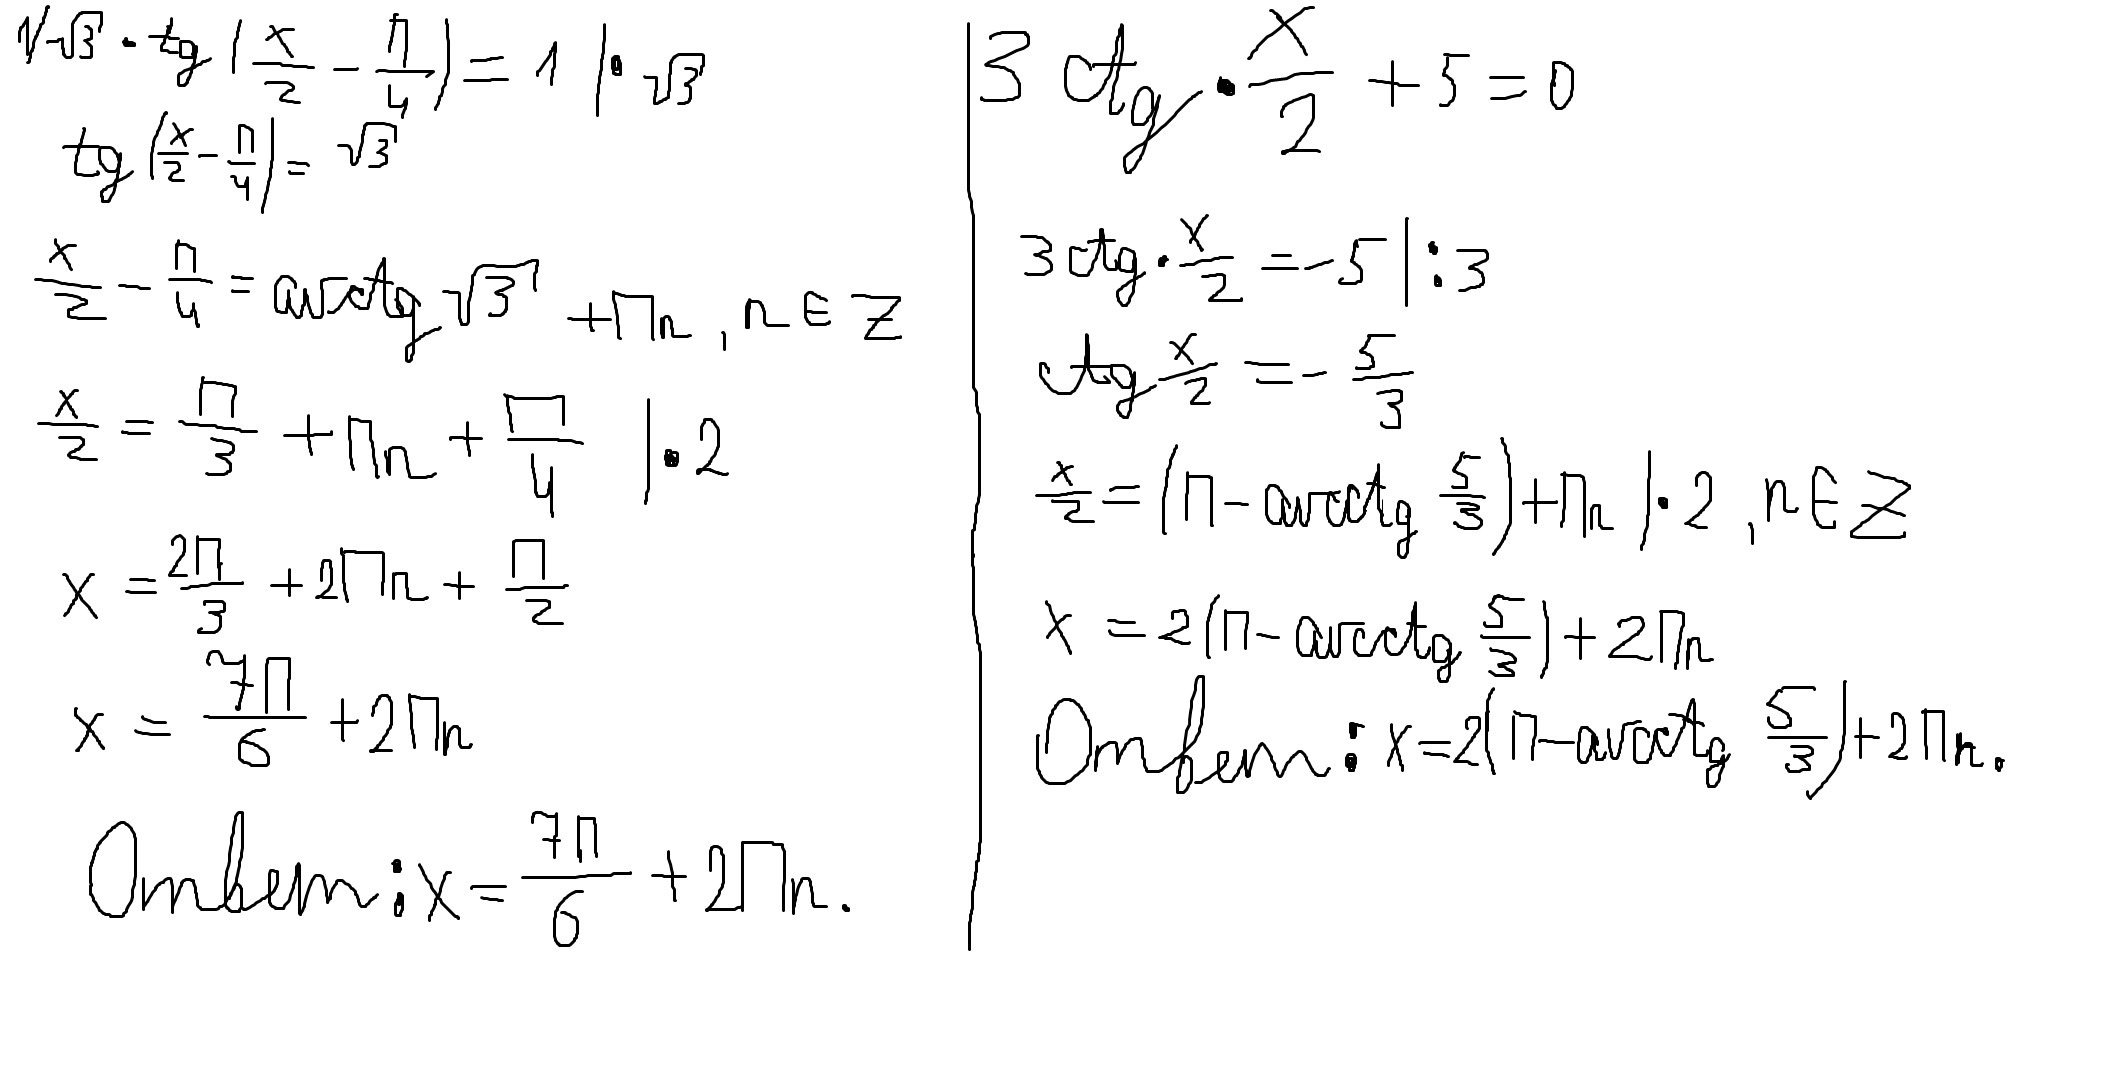 1/√3 · tg (x/2 - П/4) = 1 | · √3
tg (x/2 - П/4) = √3
x/2 - П/4 = arctg √3 + Пn, n ∈ Z
x/2 = П/3 + Пn + П/4 | · 2
x = 2П/3 + 2Пn + П/2
x = 7П/6 + 2Пn
Ответ: x = 7П/6 + 2Пn.
3 ctg · x/2 + 5 = 0
3 ctg · x/2 = -5 | : 3
ctg x/2 = - 5/3
x/2 = (П - arcctg 5/3) + Пn | · 2, n ∈ Z
x = 2(П - arcctg 5/3) + 2Пn
Ответ: x = 2(П - arcctg 5/3) + 2Пn.